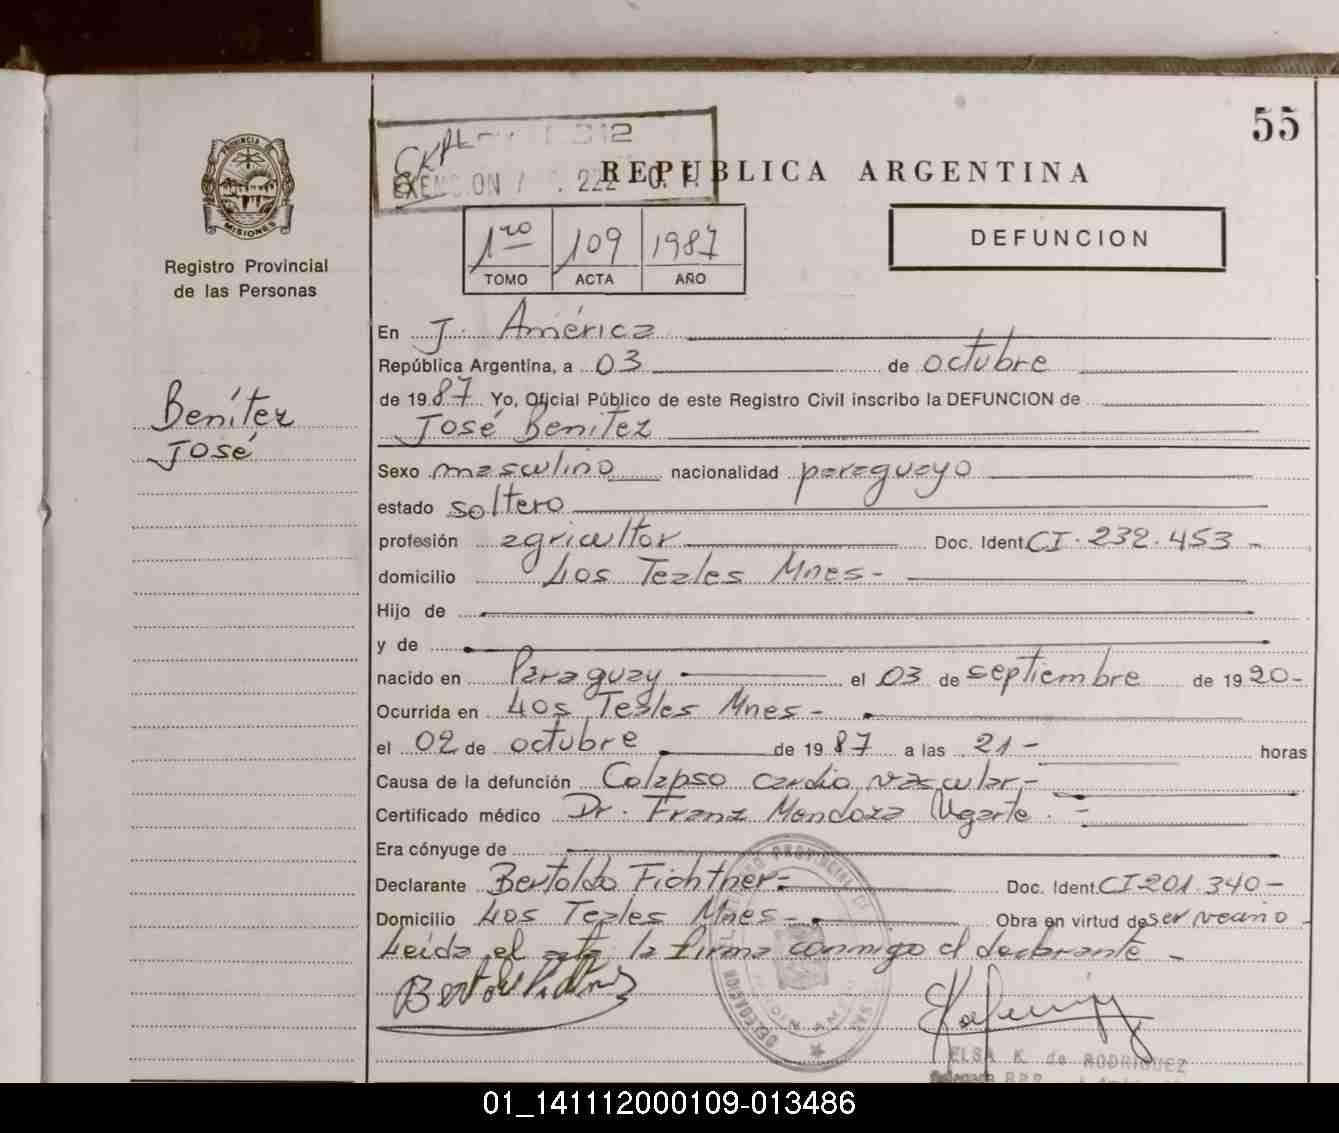 55
PROVINCIA DE
MISIONES
Registro Provincial
de las Personas
Benítez
José
EXENCION
REPUBLICA ARGENTINA
1ro 109 1987
TOMO ACTA AÑO
DEFUNCION
En J. América
República Argentina, a 03 de octubre
de 1987 Yo, Oficial Público de este Registro Civil inscribo la DEFUNCION de
José Benítez
Sexo masculino nacionalidad paraguayo
estado soltero
profesión agricultor Doc. Ident. CI. 232.453 -
domicilio Los Teales Mnes -
Hijo de
y de
nacido en Paraguay el 03 de septiembre de 1920-
Ocurrida en Los Teales Mnes -
el 02 de octubre de 1987 a las 21 - horas
Causa de la defunción Colapso cardio vascular.-
Certificado médico Dr. Franz Mendoza Ugarte. -
Era cónyuge de
Declarante Bertoldo Fichtner - Doc. Ident. CI 201.340 -
Domicilio Los Teales Mnes - Obra en virtud de ser vecino -
Leída el acta la firma conmigo el declarante -
ELSA K. de RODRIGUEZ
01_141112000109-013486